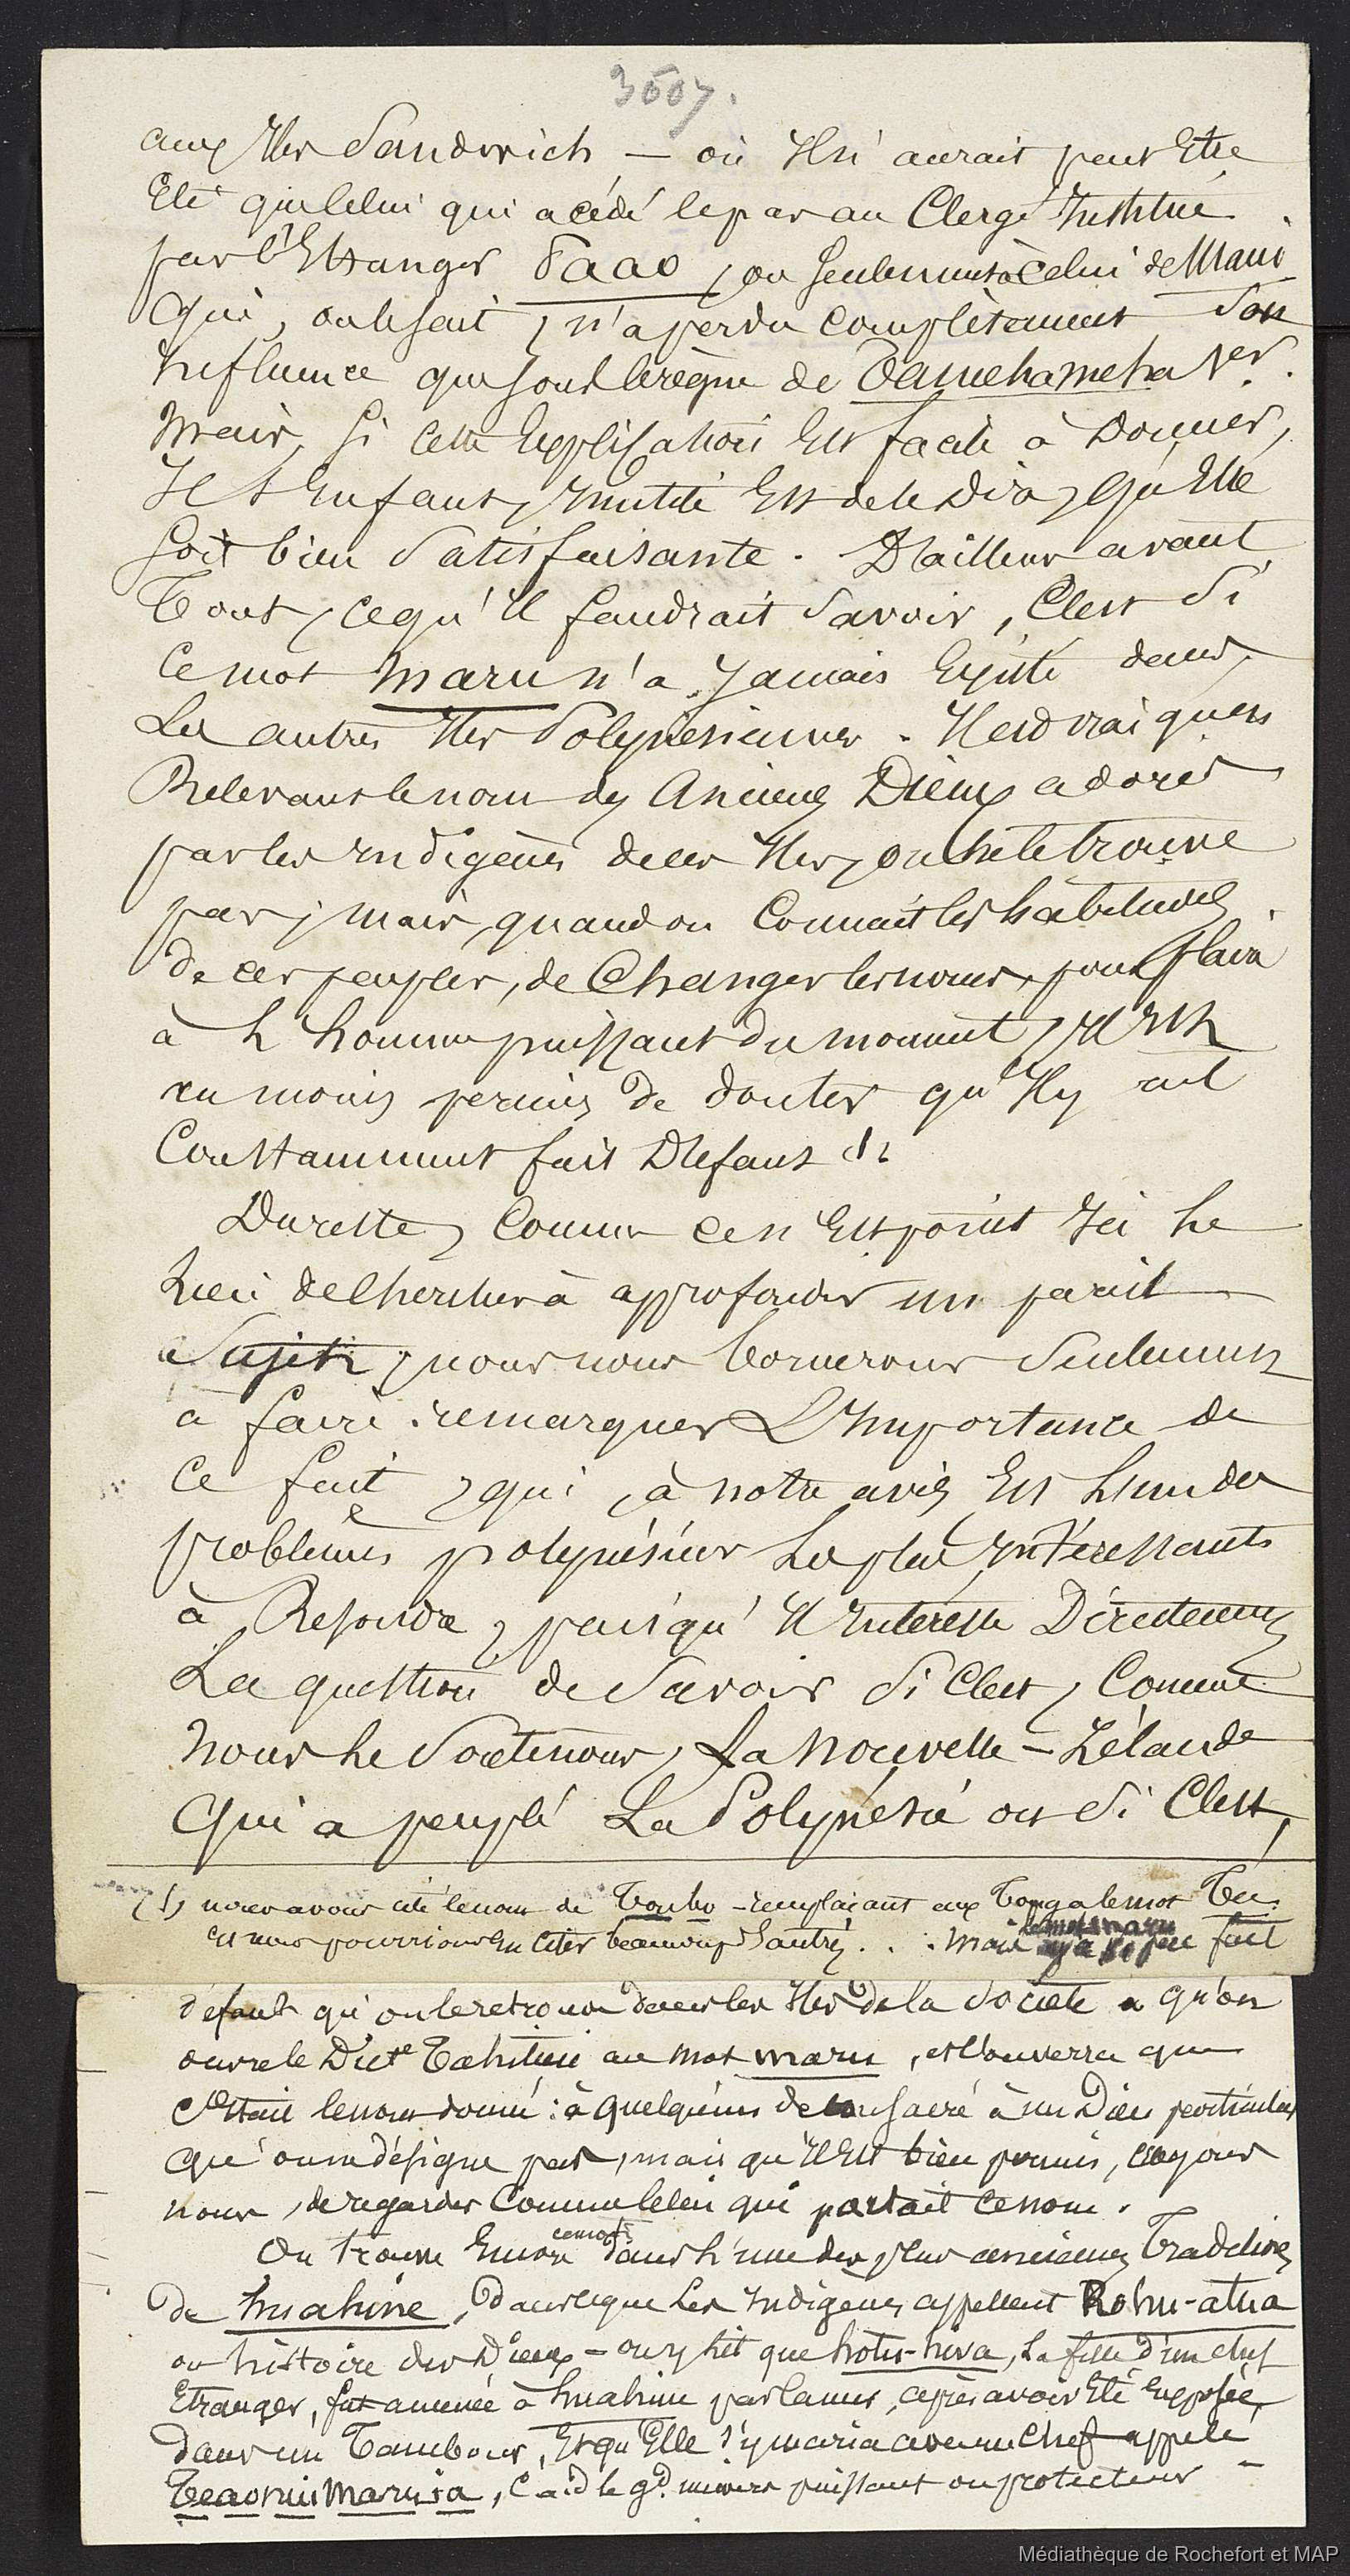 3607.
aux Iles Sandwich — où Il n'aurait peut Etre
Eté que Celui qui a cédé le pas au Clergé Institué
par l'Etranger Paao, ou seulement à Celui de Maui
qui, on le sait, n'a perdu complètement son
Influence que sous le règne de Tamehameha 1er.
Mais, si cette Explication Est facile à Donner,
Il s'En faut, Inutile Est de le Dire, qu'Elle
soit bien satisfaisante. D'ailleurs avant
Tout, ce qu'Il faudrait savoir, C'est si
Ce mot maru n'a Jamais Existé dans
Les autres Iles Polynésiennes. Il est vrai qu'en
Relevant le nom des Anciens Dieux adorés
par les Indigènes de ces Iles, on ne le trouve
pas; mais, quand on Connait les habitudes
de ces peuples, de Changer les noms, pour plaire
à L'homme puissant du moment, Il Est
au moins permis de douter qu'Il y ait
Constamment fait Défaut (1).
Du reste, Comme ce n'Est point Ici Le
Lieu de Chercher à approfondir un pareil
Sujet, nous nous bornerons seulement
à faire remarquer L'Importance de
Ce fait, qui, à notre avis, Est L'un des
problèmes polynésiens Les plus Intéressants
à Résoudre, puisqu'Il Intéresse Directement
La question de savoir si C'est, Comme
nous Le soutenons, La Nouvelle-Zélande
qui a peuplé La Polynésie ou si C'est,
(1) nous avons cité le nom de Toubo - remplaçant aux Tonga le mot Tu
et nous pourrions En citer beaucoup d'autres... Mais le mot maru fait
défaut qu'on le retrouve dans les Iles de la Société qu'on
ouvre le Dictre Tahitien au mot maru, et l'on verra que
c'était le nom donné: à quelqu'un de consacré à un Dieu particulier
qu'on ne désigne pas, mais qu'Il Est bien permis, croyons
nous, de regarder Comme Celui qui portait ce nom.
On trouve Encore ce mot dans L'une des plus anciennes Traditions
de huahine, Dans ce que Les Indigènes appellent Rohu-atua
ou histoire des Dieux - on y lit que hotu-hiva, La fille d'un chef
Etranger, fut amenée à huahine par la mer, après avoir Eté Exposée,
dans un Tambour, Et qu'Elle s'y maria avec un Chef appelé
Teaonuimaruia, C.à.d le gd. univers puissant ou protecteur
Médiathèque de Rochefort et MAP